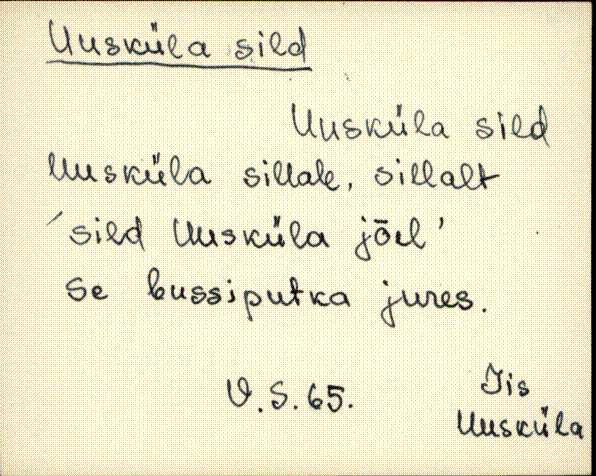 Uusküla sild
Uusküla sild
Uusküla sillale, sillalt
'sild Uusküla jõel'
Se bussiputka jures.
V.S.65.
Iis
Uusküla